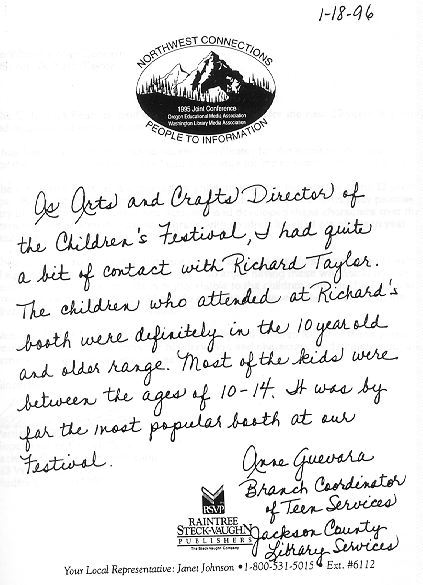 1-18-96
NORTHWEST CONNECTIONS
1995 Joint Conference
Oregon Educational Media Association
Washington Library Media Association
PEOPLE TO INFORMATION
As Arts and Crafts Director of
the Children's Festival, I had quite
a bit of contact with Richard Taylor.
The children who attended at Richard's
booth were definitely in the 10 year old
and older range. Most of the kids were
between the ages of 10-14. It was by
far the most popular booth at our
Festival.
Anne Guevara
Branch Coordinator
of Teen Services
Jackson County
Library Services
RSVP
RAINTREE
STECK-VAUGHN
PUBLISHERS
The Steck-Vaughn Company
Your Local Representative: Janet Johnson • 1-800-531-5015 • Ext. #6112